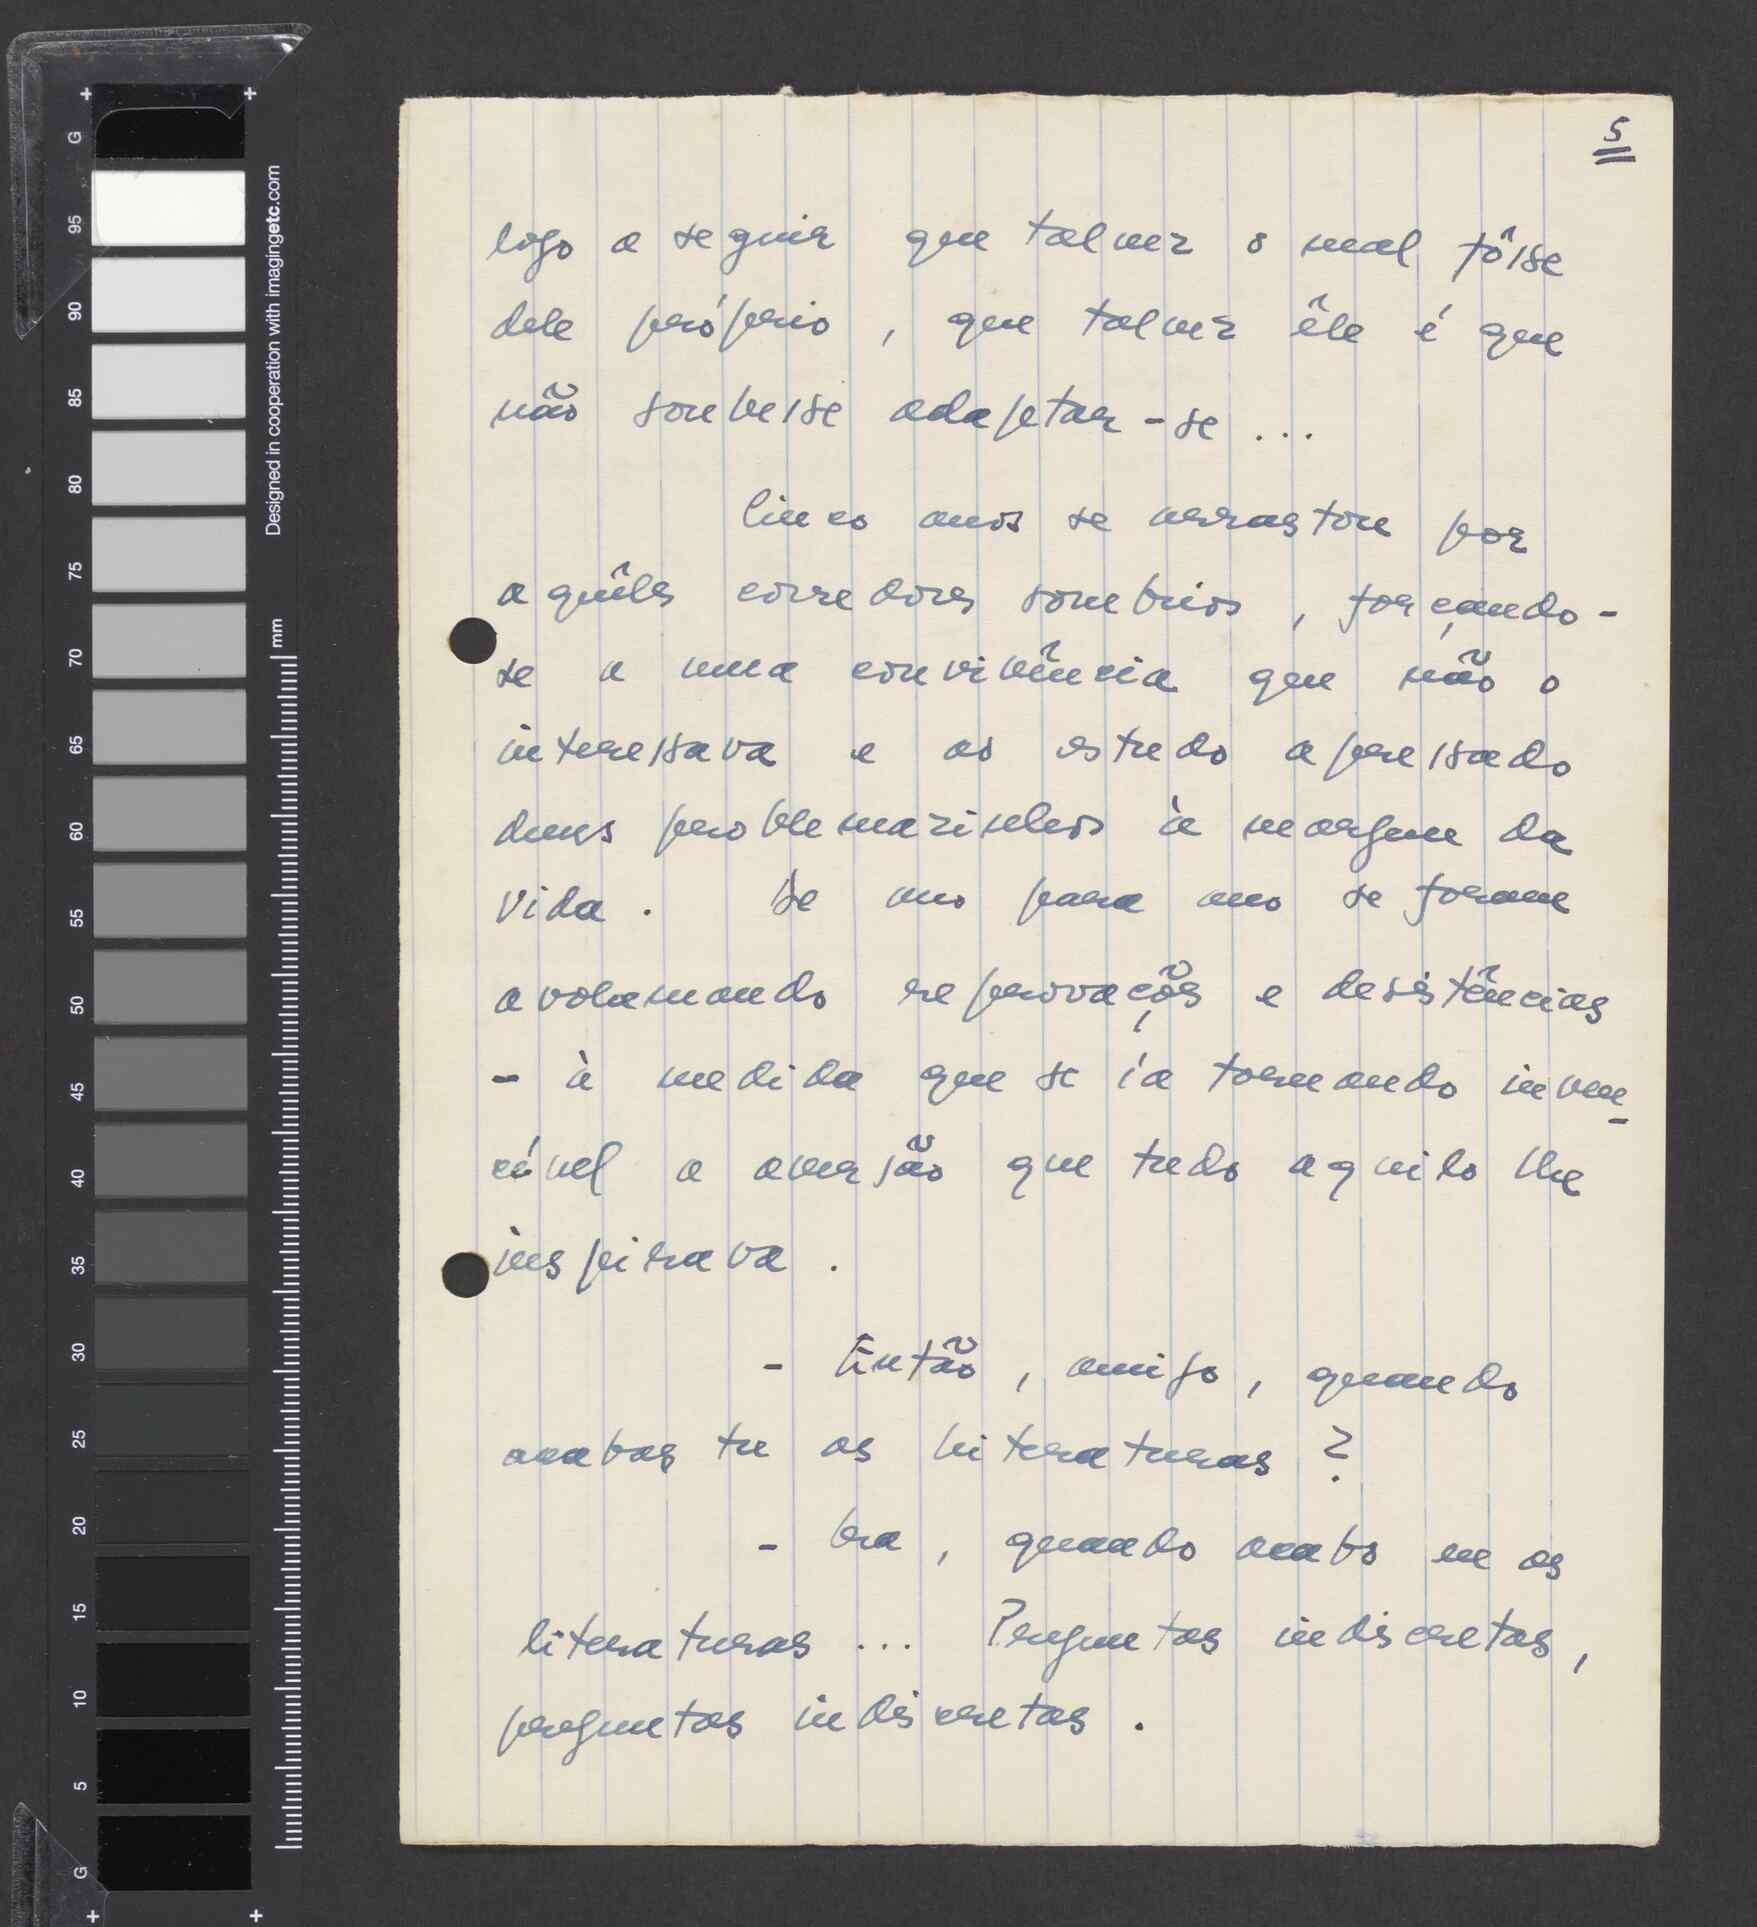 5
logo a seguir que talvez o mal fôsse
dele próprio, que talvez êle é que
não soubesse adaptar-se ...
Cinco anos se arrastou por
aquêles corredores sombrios, forçando-
se a uma convivência que não o
interessava e ao estudo apressado
duns problemazinhos à margem da
vida. De ano para ano se foram
avolumando reprovações e desistências
- à medida que se ía tornando inven-
cível a aversão que tudo aquilo lhe
inspirava.
- Então, amigo, quando
acabas tu as literaturas?
- Ora, quando acabo eu as
literaturas ... Perguntas indiscretas,
perguntas indiscretas.
G
95
90
85
80
75
70
65
60
55
50
45
40
35
30
25
20
15
10
5
G
Designed in cooperation with imagingetc.com
mm